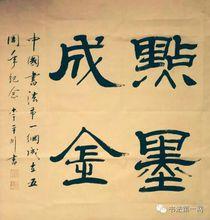 點墨
成金
中國書法第一網成立五
周年紀念 書
书法第一网